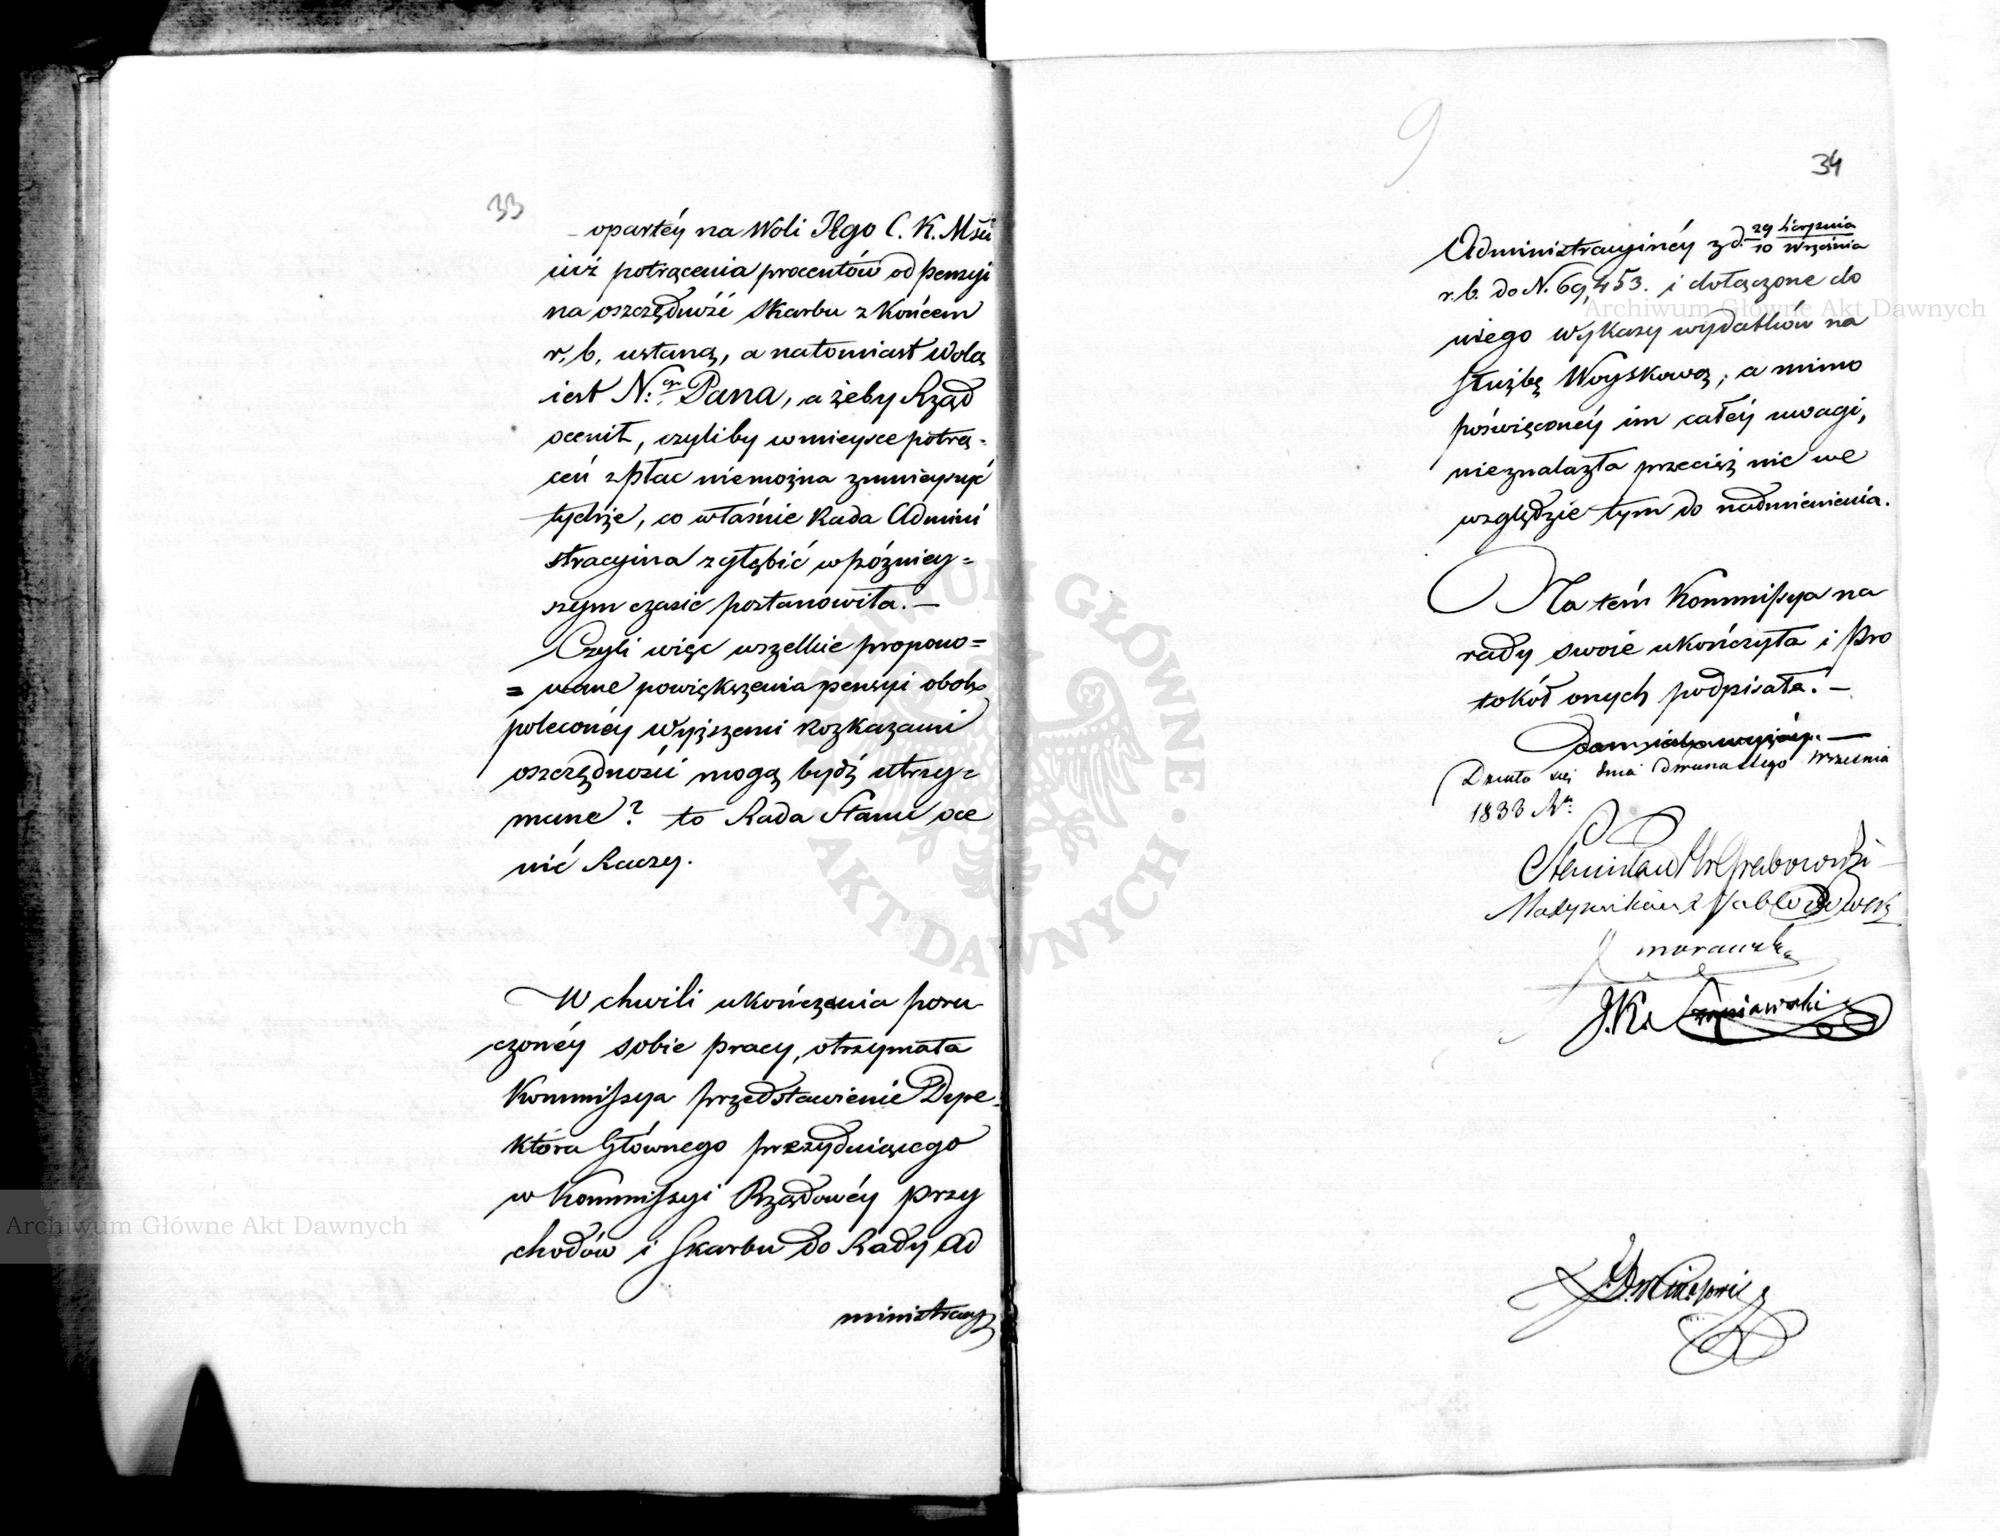 33
opartéy na Woli Jego C. K. Mści
iuż potrącenia procentów od pensyi
na oszczędność Skarbu z końcem
r. b. ustaną, a natomiast Wolą
iest N: Pana, a żeby Rząd
ocenił, czyliby w mieysce potrą-
ceń z płac niemożna zmnieyszyć
tychże, co właśnie Rada Admini
stracyina zgłębić w późniey=
szym czasie postanowiła. —
Czyli więc wszelkie propono=
= wane powiększenia pensyi obok
poleconéy Wyższemi Rozkazami
oszczędności mogą bydź utrzy=
mane? to Rada Stanu oce
nić Raczy.
W chwili ukończenia poru-
czonéy sobie pracy, otrzymała
Kommissya przedstawienie Dyre-
ktora Głównego prezyduiącego
w Kommissyi Rządowéy przy
chodów i Skarbu do Rady Ad
ministracy
9
34
Administracyinéy z d. 29 Sierpnia / 10 Września
r. b. do N. 69,453. i dołączone do
niego wykazy wydatków na
służbę Woyskową; a mimo
poświęconéy im całéy uwagi,
nieznalazła przecież nic we
względzie tym do nadmienienia.
Na tém Kommissya na
rady swoie ukończyła i Pro
tokół onych podpisała. —
Działo się dnia dwunastego Września
1833 R.
Stanisław Grabowski
Jabłonowski
Morawski
J. K. Szaniawski
Archiwum Główne Akt Dawnych
Archiwum Główne Akt Dawnych
ARCHIWUM GŁÓWNE AKT DAWNYCH